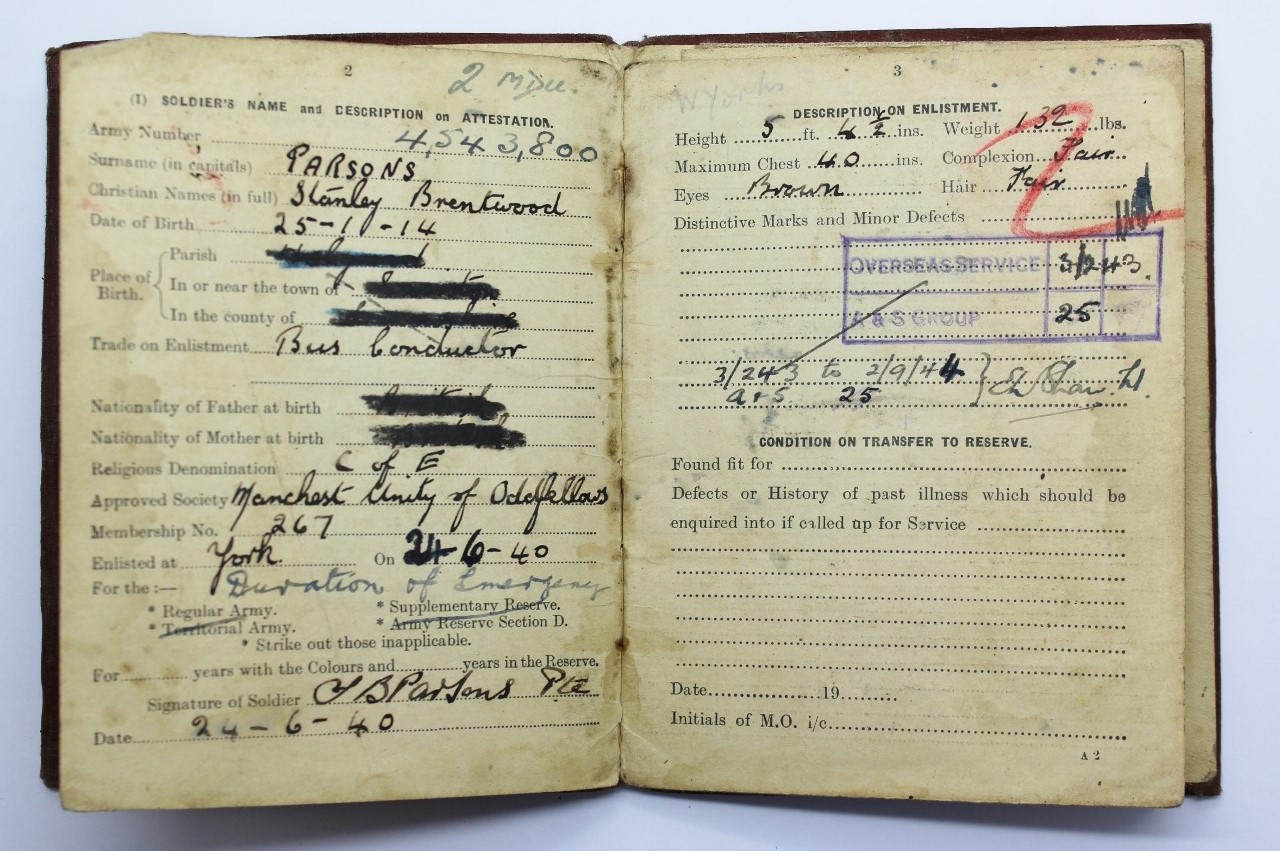 2
2 MDU.
(1) SOLDIER'S NAME and DESCRIPTION on ATTESTATION.
Army Number 4,543,800
Surname (in capitals) PARSONS
Christian Names (in full) Stanley Brentwood
Date of Birth 25-1-14
Place of Birth.
Parish
In or near the town of
In the county of
Trade on Enlistment Bus Conductor
Nationality of Father at birth
Nationality of Mother at birth
Religious Denomination C of E
Approved Society Manchest Unity of Oddfellows
Membership No. 267
Enlisted at York On 24-6-40
For the :— Duration of Emergency
* Regular Army. * Supplementary Reserve.
* Territorial Army. * Army Reserve Section D.
* Strike out those inapplicable.
For years with the Colours and years in the Reserve.
Signature of Soldier S B Parsons Pte
Date 24-6-40
3
W Yorks
DESCRIPTION ON ENLISTMENT.
Height 5 ft. 4 ½ ins. Weight 132 lbs.
Maximum Chest 40 ins. Complexion Fair
Eyes Brown Hair Fair
Distinctive Marks and Minor Defects
2
OVERSEAS SERVICE 3/2 43.
A & S GROUP 25
3/243 to 2/9/44
a+s. 25
CONDITION ON TRANSFER TO RESERVE.
Found fit for
Defects or History of past illness which should be
enquired into if called up for Service
Date 19
Initials of M.O. i/c
A 2